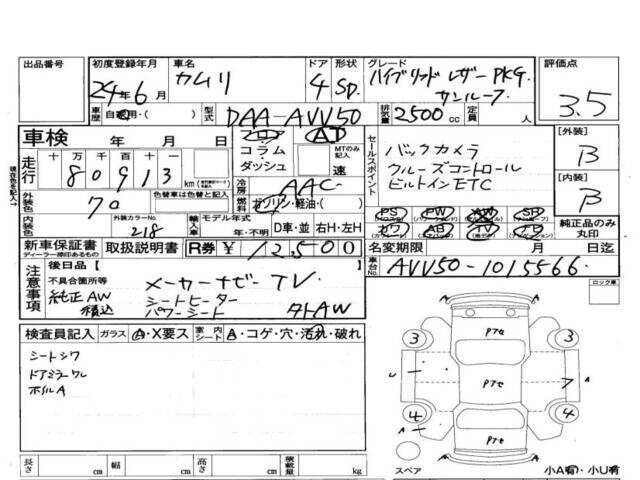 出品番号 初度登録年月 車名 ドア 形状 グレード 評価点
24年6月 カムリ 4 SD. ハイブリッド レザーPKG. サンルーフ 3.5
車歴 自家用・( ) 型式 DAA-AVV50 排気量 2500cc 定員 人
車検 年 月 日
コラム・ダッシュ MTのみ記入 速
セールスポイント
バックカメラ
クルーズコントロール
ビルトインETC
[外装] B
[内装] B
走行 十 万 千 百 十 一
80913 km
冷房 AAC
外装色 70 色替車は色替と記入
燃料 ガソリン・軽油・( )
PS PW AW SR
カワ AB TV
純正品のみ丸印
内装色 外装カラーNo. 218 輸入車 モデル年式 年・不明 D車・並 右H・左H
新車保証書 ディーラー捺印あるもの 取扱説明書 R券 ¥ 12,500
名変期限 月 日迄
車台No. AVV50-1015566
注意事項
後日品 [ ]
不具合箇所等
純正AW 積込
メーカーナビ-TV
シートヒーター
パワーシート
タトAW
ロック車
検査員記入 ガラス A・X要ス 室内シート A・コゲ・穴・汚れ・破れ
シートシワ
ドアミラーワレ
ホイルA
長さ cm 幅 cm 高さ cm 積載量 kg
3 3
4 4
スペア
小A有・小U有